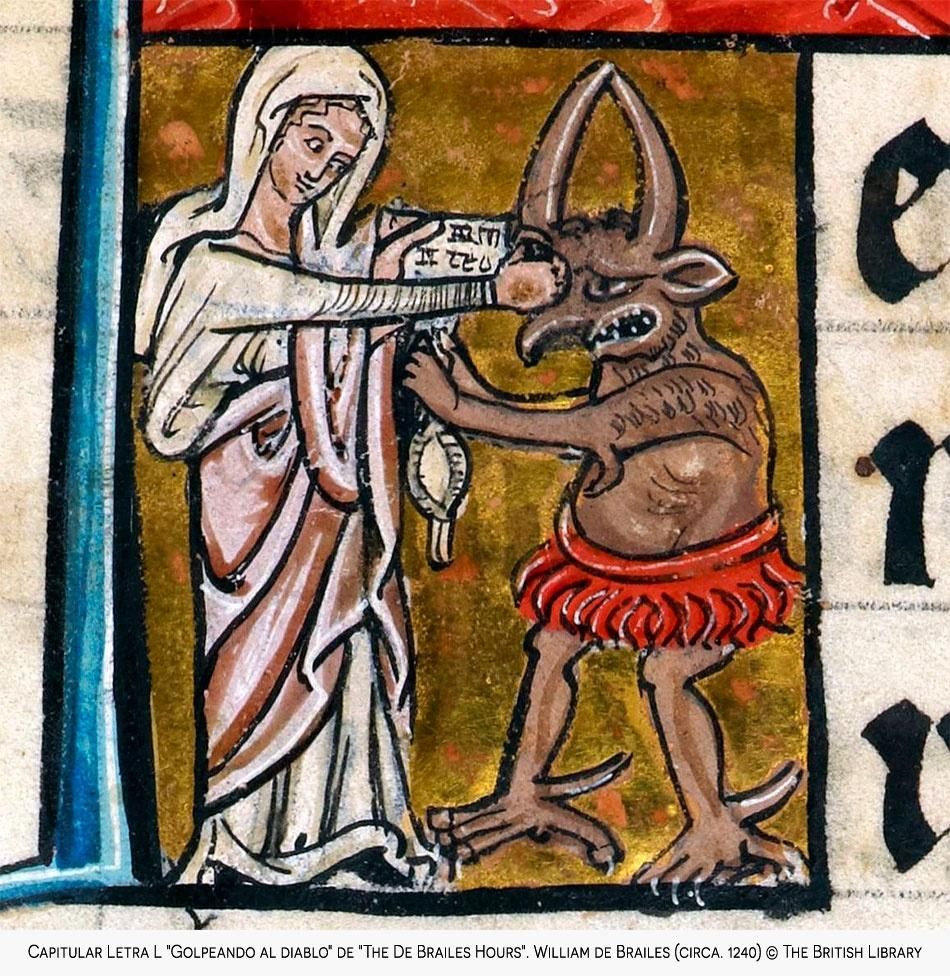 e
CAPITULAR LETRA L "GOLPEANDO AL DIABLO" DE "THE DE BRAILES HOURS". WILLIAM DE BRAILES (CIRCA. 1240) © THE BRITISH LIBRARY